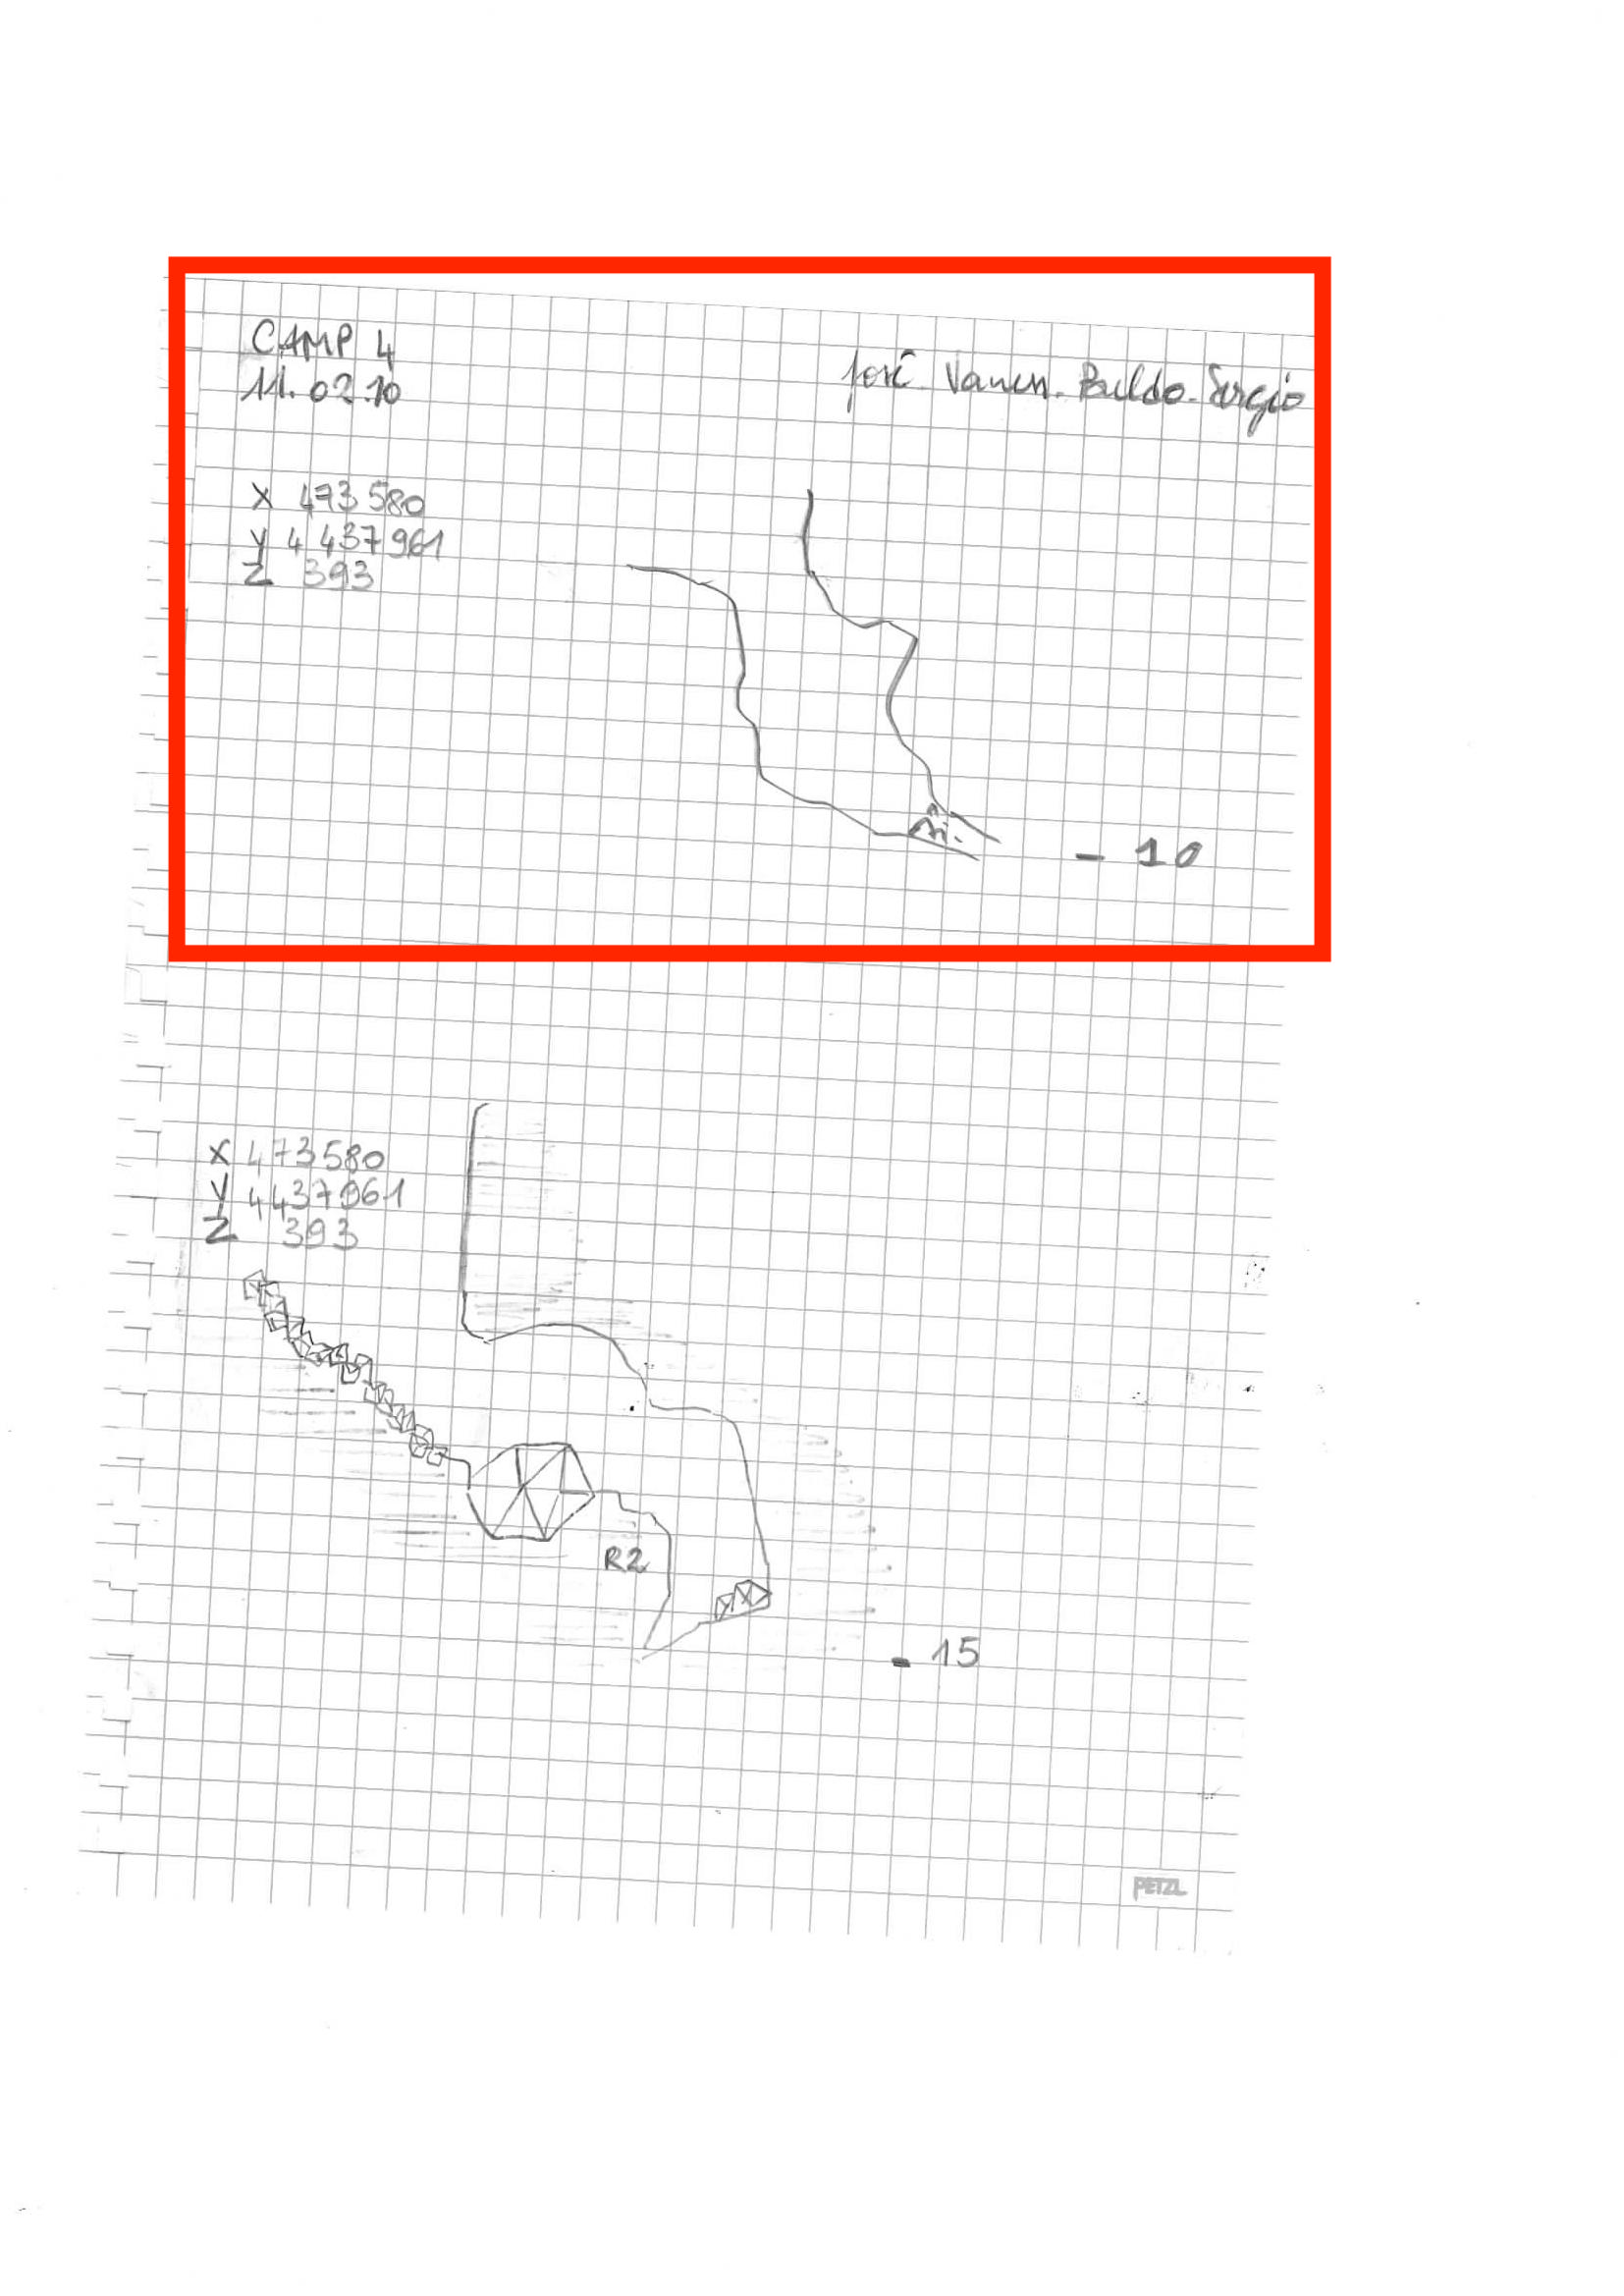 CAMP 4
11.02.10
José. Vanessa. Baldo. Sergio
X 473580
Y 4437961
Z 393
- 10
X 473580
Y 4437961
Z 393
R2
- 15
PETZL